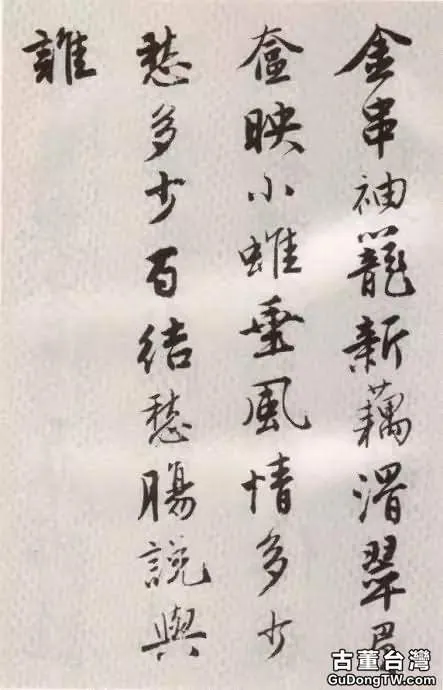 金串袖籠新藕滑翠眉
奩映小蛾垂風情多少
愁多少百結愁腸說與
誰
古董台灣
GuDongTW.com